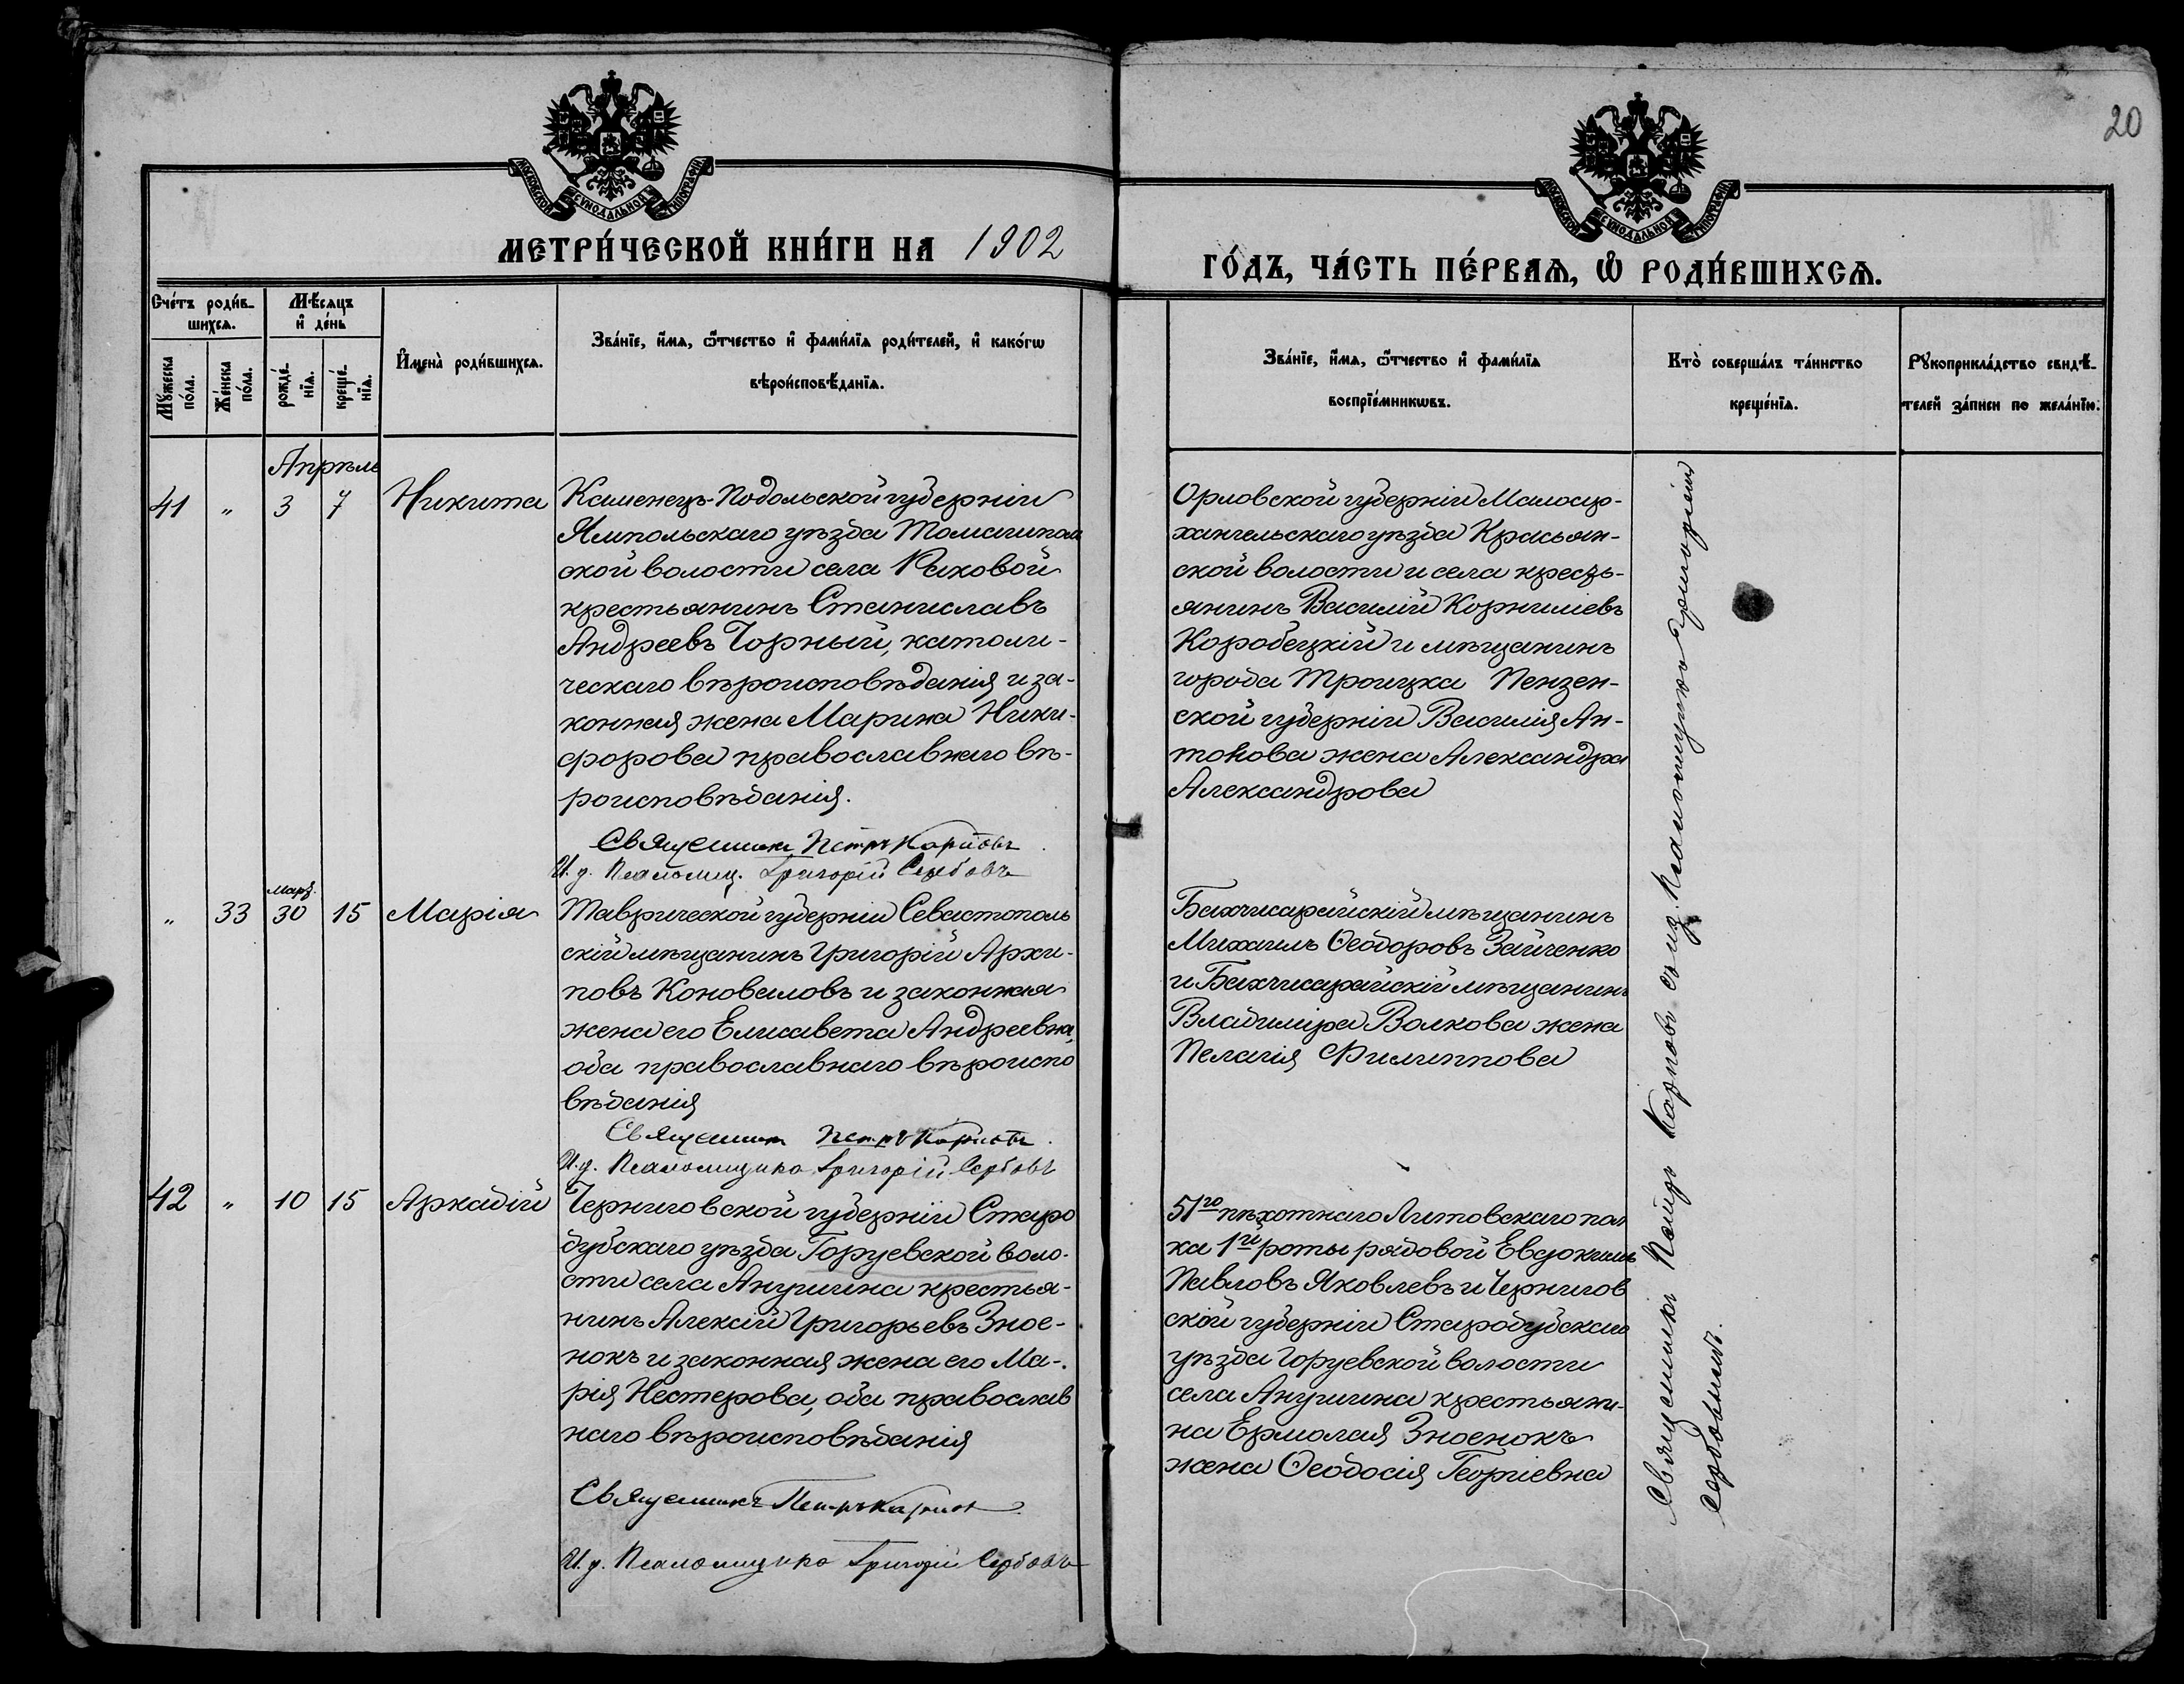 20
МОСКОВСКОЙ СѴНОДАЛЬНОЙ ТИПОГРАФІИ
МОСКОВСКОЙ СѴНОДАЛЬНОЙ ТИПОГРАФІИ
МЕТРИ́ЧЕСКОЙ КНИ́ГИ НА 1902
ГО́ДЪ, ЧА́СТЬ ПЕ́РВАѦ, Ѡ҆ РОДИ́ВШИХСѦ.
Сче́тъ роди́в-
шихсѧ.
Мꙋ́жеска
по́ла.
Же́нска
по́ла.
Мѣ́сѧцъ
и҆ де́нь
рожде́-
нїѧ.
креще́-
нїѧ.
И҆мена̀ роди́вшихсѧ.
Зва́нїе, и҆́мѧ, ѻ҆́тчество и҆ фами́лїѧ роди́телей, и҆ како́гѡ
вѣроисповѣ́данїѧ.
Зва́нїе, и҆́мѧ, ѻ҆́тчество и҆ фами́лїѧ
воспрїе́мникѡвъ.
Кто̀ соверша́лъ та́инство
креще́нїѧ.
Рꙋкоприкла́дство свидѣ́-
телей за́писи по жела́нїю.
Апрѣль
41 " 3 7 Никита
Каменецъ-Подольской губерніи
Ямпольскаго уѣзда Томашполь
ской волости села Раковой
крестьянинъ Станиславъ
Андреевъ Чорный, католи-
ческаго вѣроисповѣданія и за-
конная жена Марина Ники-
форова православнаго вѣ-
роисповѣданія.
Священникъ Петръ Карповъ
И. д. Псаломщ. Григорій Сербовъ
Орловской губерніи Малоар-
хангельскаго уѣзда Красьян-
ской волости и села кресть-
янинъ Василій Корниліевъ
Коробецкій и мѣщанинъ
города Троицка Пензен-
ской губерніи Василія Ан-
тонова жена Александра
Александрова
Март.
" 33 30 15 Марія
Таврической губерніи Севастополь
скій мѣщанинъ Григорій Архи-
повъ Коноваловъ и законная
жена его Елисавета Андреевна,
оба православнаго вѣроиспо
вѣданія
Священникъ Петръ Карповъ
И. д. Псаломщика Григорій Сербовъ
Бахчисарайскій мѣщанинъ
Михаилъ Ѳеодоровъ Зайченко
и Бахчисарайскій мѣщанинъ
Владиміра Волкова жена
Пелагія Филиппова
42 " 10 15 Аркадій
Черниговской губерніи Старо
дубскаго уѣзда Горуевской воло-
сти села Анушина крестья-
нинъ Алексій Григорьевъ Зное-
нокъ и законная жена его Ма-
рія Нестерова, оба православ
наго вѣроисповѣданія
Священникъ Петръ Карповъ
И. д. Псаломщика Григорій Сербовъ
51го пѣхотнаго Литовскаго пол
ка 1й роты рядовой Евдокимъ
Павловъ Яковлевъ и Чернигов
ской губерніи Стародубскаго
уѣзда Горуевской волости
села Анушина крестьяни-
на Ермолая Зноенокъ
жена Ѳеодосія Георгіевна
Священникъ Петръ Карповъ съ и.д. Псаломщика Григоріемъ
Сербовымъ.